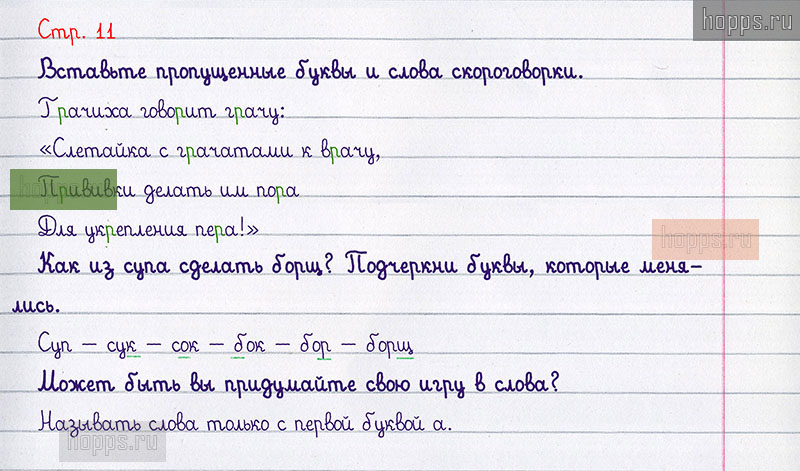 hopps.ru
Стр. 11
Вставьте пропущенные буквы и слова скороговорки.
Грачиха говорит грачу:
«Слетайка с грачатами к врачу,
Прививки делать им пора
hopps.ru
Для укрепления пера!»
hopps.ru
Как из супа сделать борщ? Подчеркни буквы, которые меня-
лись.
Суп – сук – сок – бок – бор – борщ
Может быть вы придумайте свою игру в слова?
Называть слова только с первой буквой а.
hopps.ru